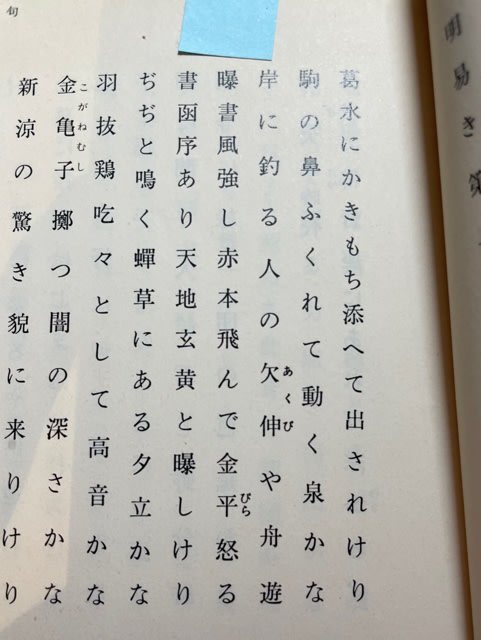 明易き
葛水にかきもち添へて出されけり
駒の鼻ふくれて動く泉かな
あくび
岸に釣る人の欠伸や舟遊
びら
曝書風強し赤本飛んで金平怒る
書函序あり天地玄黄と曝しけり
ぢぢと鳴く蟬草にある夕立かな
羽抜鶏吃々として高音かな
こがねむし
金亀子擲つ闇の深さかな
新涼の驚き貌に来りけり
句